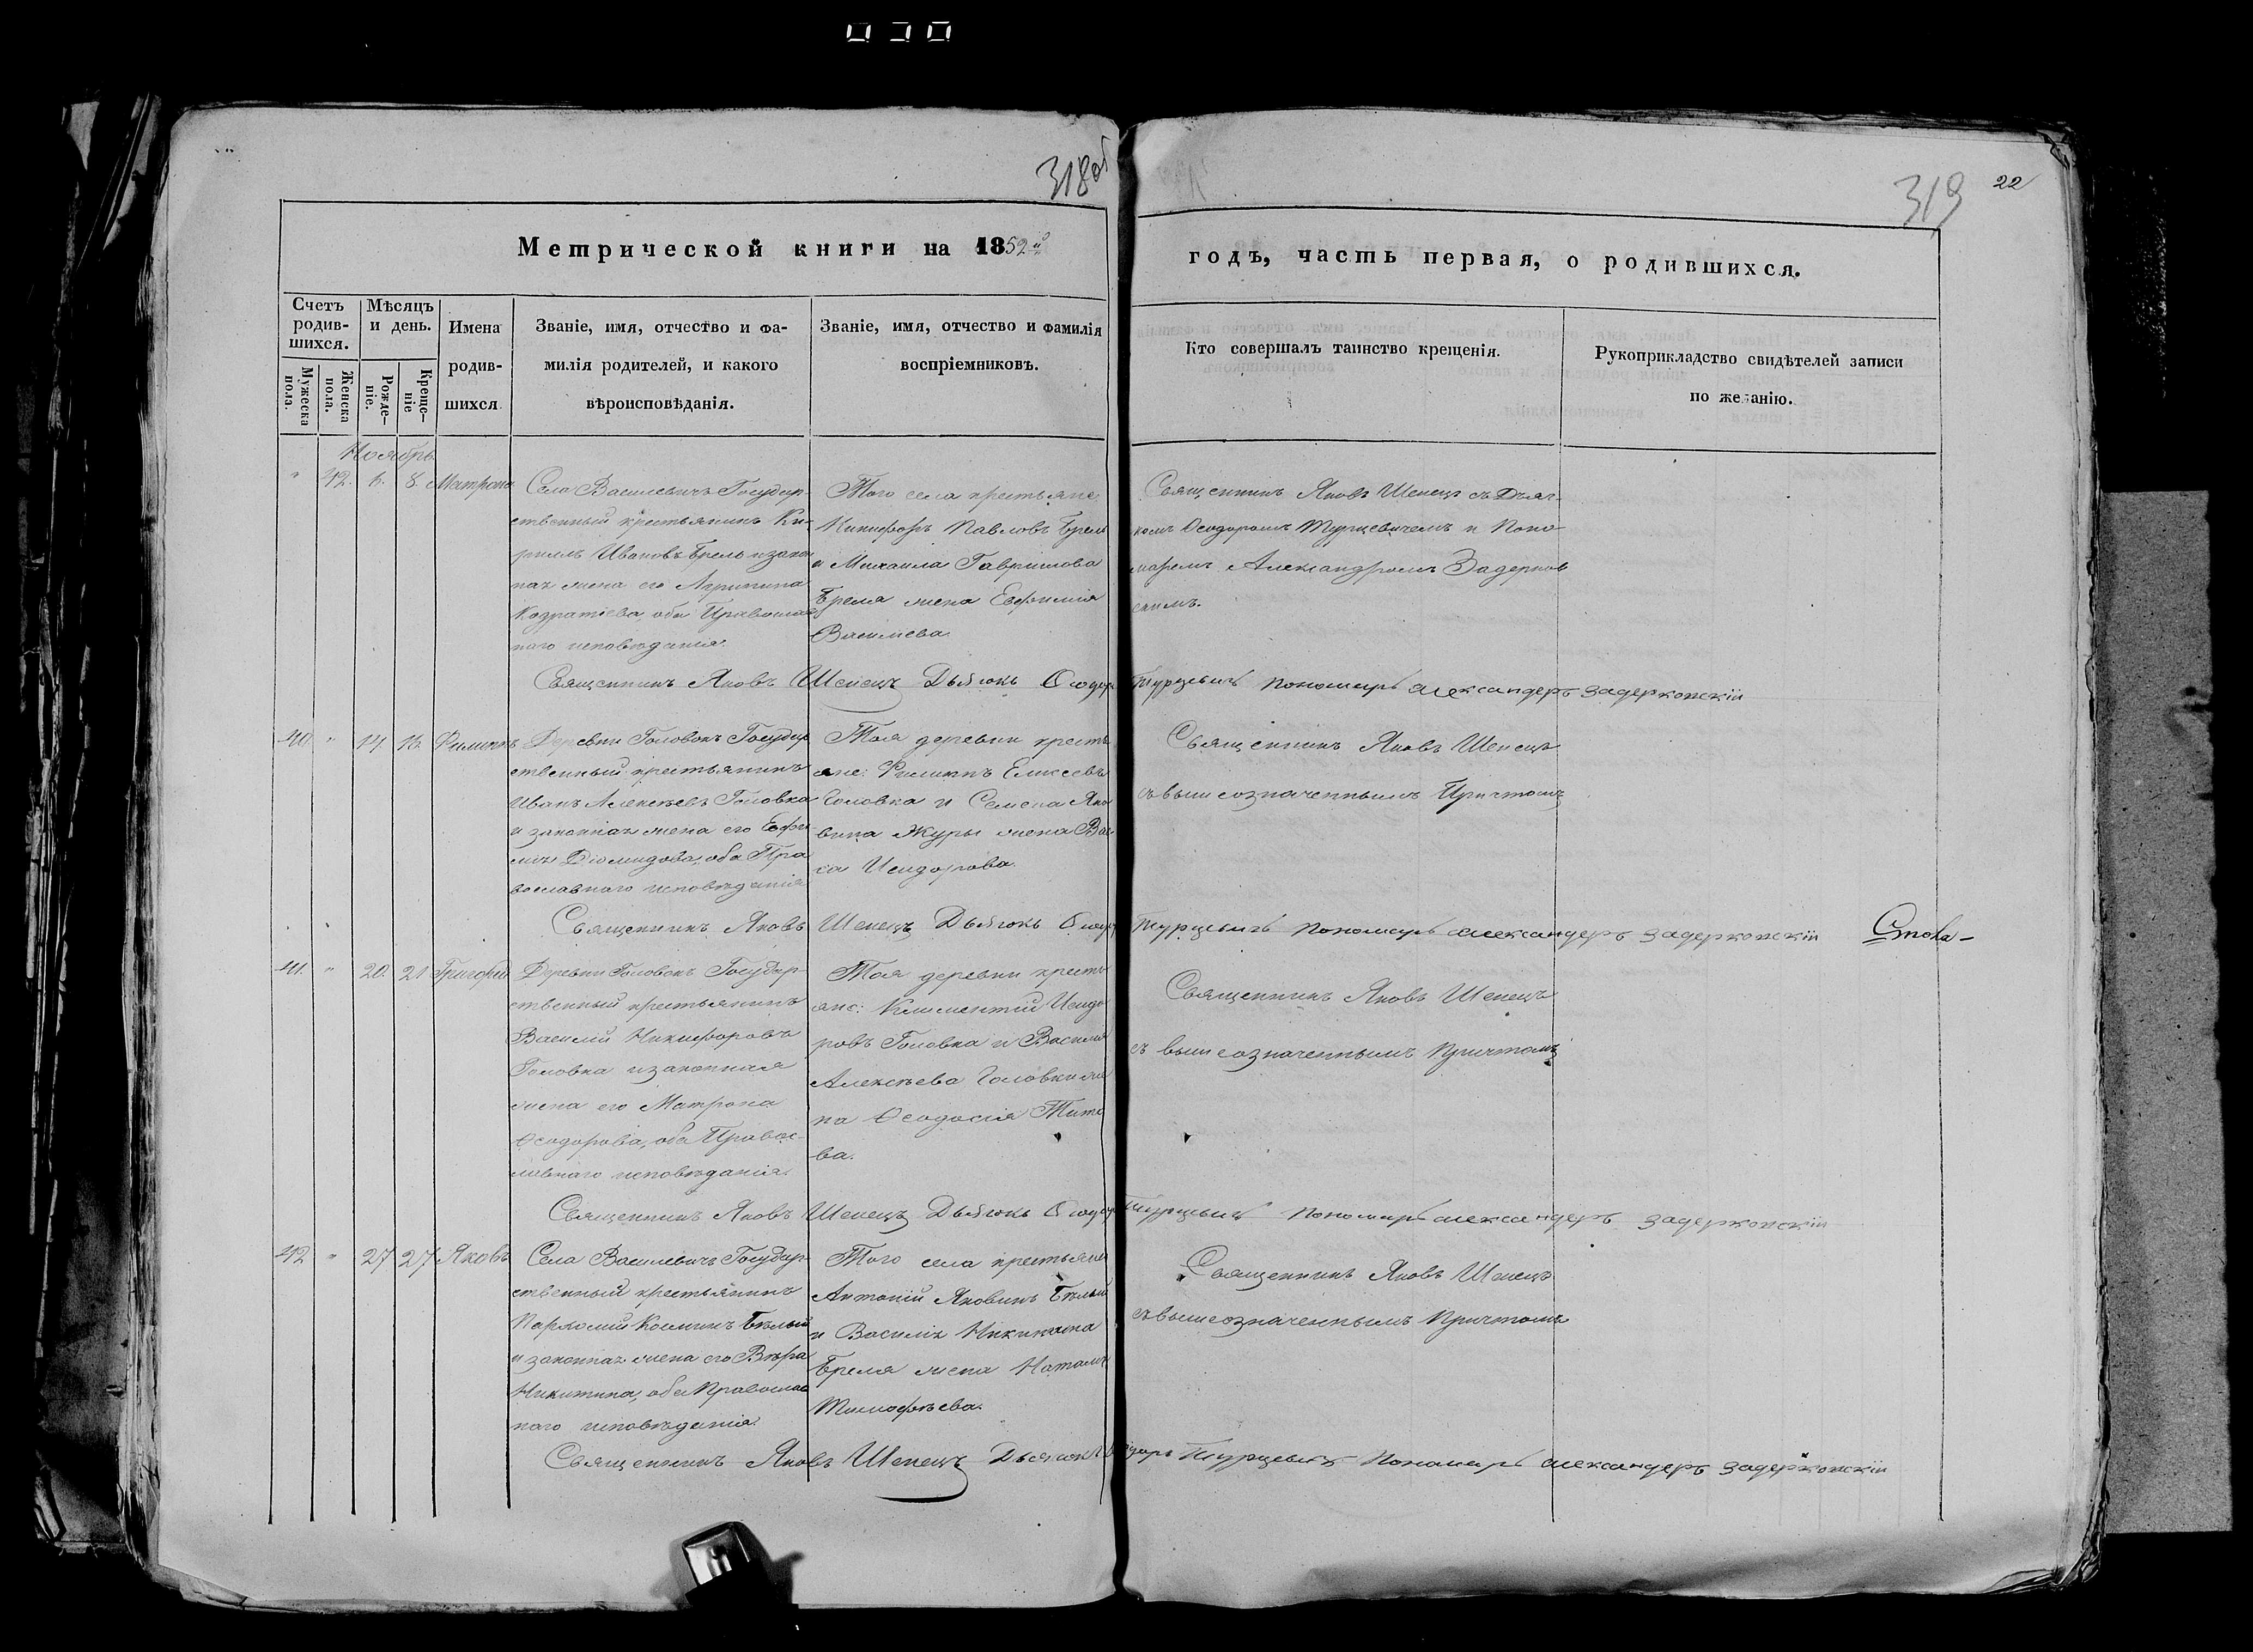 318об
319 22
Метрической книги на 1852й
годъ, часть первая, о родившихся.
Счетъ родив-шихся.
Мужеска пола.
Женска пола.
Мѣсяцъ и день.
Рожде-ніе.
Креще-ніе
Имена родив-шихся
Званіе, имя, отчество и фа-
милія родителей, и какого
вѣроисповѣданія.
Званіе, имя, отчество и фамилія
воспріемниковъ.
Кто совершалъ таинство крещенія.
Рукоприкладство свидѣтелей записи
по желанію.
Ноябрь
" 42. 6. 8. Матрона
Села Василевичъ Государ-
ственный крестьянинъ Ки-
риллъ Ивановъ Брель и закон
ная жена его Агрипина
Кодратіева, оба Православ
наго исповѣданія.
Того села крестьяне
Никифоръ Павловъ Брель
и Михаила Гаврилова
Бреля жена Евфимія
Василіева.
Священникъ Яковъ Шепецъ съ Дьяч-
комъ Ѳеодоромъ Турцевичемъ и Поно-
маремъ Александромъ Задерков
скимъ.
Священникъ Яковъ Шепецъ Дьячокъ Ѳеодоръ Турцевичъ Пономарь Александеръ Задерковскій
40. " 14. 16. Филиппъ
Деревни Головокъ Государ
ственный крестьянинъ
Иванъ Алексѣевъ Головка
и законная жена его Евфи
мія Діомидова, оба Пра
вославнаго исповѣданія
Тоя деревни кресть
яне: Филиппъ Елисеевъ
Головка и Семена Яко
вина Журы жена Вас
са Исидорова.
Священникъ Яковъ Шепецъ
съ вышеозначеннымъ Причтомъ
Священникъ Яковъ Шепецъ Дьячокъ Ѳеодоръ Турцевичъ Пономарь Александеръ Задерковскій
41. " 20. 21 Григорій
Деревни Головокъ Государ-
ственный крестьянинъ
Василій Никифоровъ
Головка и законная
жена его Матрона
Ѳеодорова, оба Правос-
лавнаго исповѣданія.
Тоя деревни кресть
яне: Климентій Исидо
ровъ Головка и Василія
Алексѣева Головки же
на Ѳеодосія Тито
ва.
Священникъ Яковъ Шепецъ
съ вышеозначеннымъ Причтомъ
Священникъ Яковъ Шепецъ Дьячокъ Ѳеодоръ Турцевичъ Пономарь Александеръ Задерковскій
42 " 27 27 Яковъ
Села Василевичъ Государ-
ственный крестьянинъ
Пархомій Косминъ Бѣлый
и законная жена его Вѣра
Никитина, оба Православ
наго исповѣданія.
Того села крестьяне
Антоній Яковинъ Бѣлый
и Василія Никитина
Бреля жена Наталія
Тимофѣева.
Священникъ Яковъ Шепецъ
съ вышеозначеннымъ Причтомъ
Священникъ Яковъ Шепецъ Дьячокъ Ѳеодоръ Турцевичъ Пономарь Александеръ Задерковскій